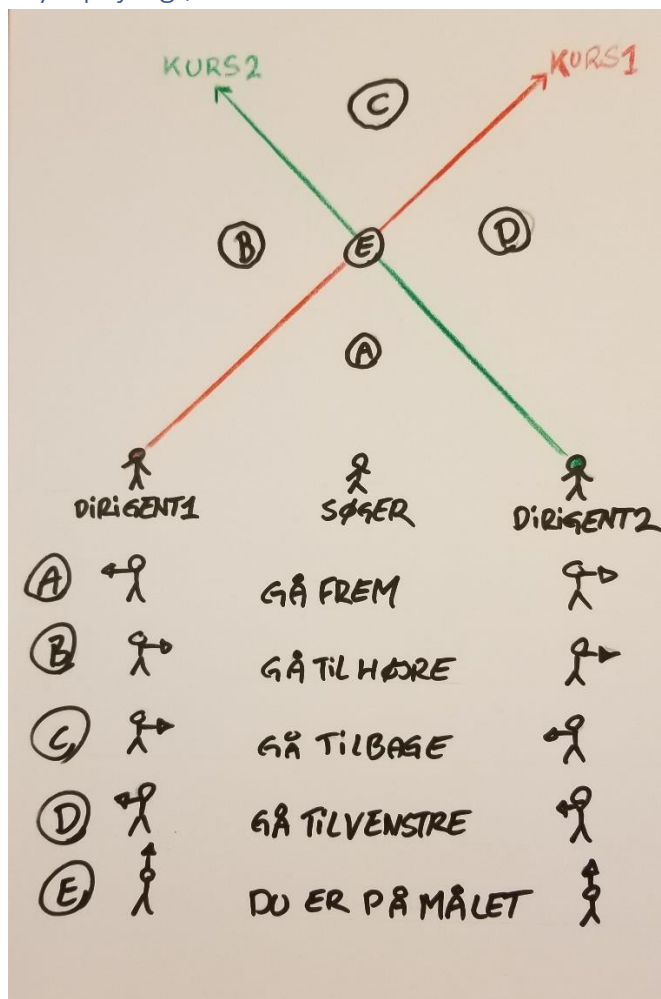 KURS2
KURS1
C
B
E
D
A
DIRIGENT1
SØGER
DIRIGENT2
A GÅ FREM
B GÅ TIL HØJRE
C GÅ TILBAGE
D GÅ TIL VENSTRE
E DU ER PÅ MÅLET